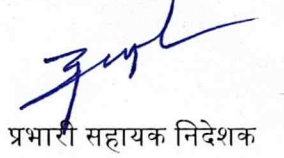 प्रभारी सहायक निदेशक